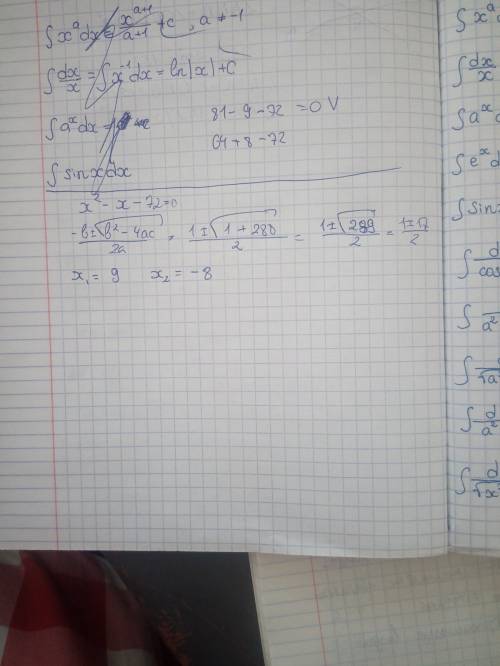 ∫ x^a dx = x^(a+1)/(a+1) + c , a ≠ -1
∫ dx/x = ∫ x^-1 dx = ln|x| + C
∫ a^x dx =
81 - 9 - 72 = 0 V
64 + 8 - 72
∫ sin x dx
x² - x - 72 = 0
-b ± √(b² - 4ac) / 2a = 1 ± √(1 + 288) / 2 = 1 ± √289 / 2 = 1 ± 17 / 2
x₁ = 9 x₂ = -8
∫ x^a
∫ dx/x
∫ a^x
∫ e^x d
∫ sin
∫ d/cos
∫ /a²
∫ /√a
∫ d/a²
∫ d/√x²